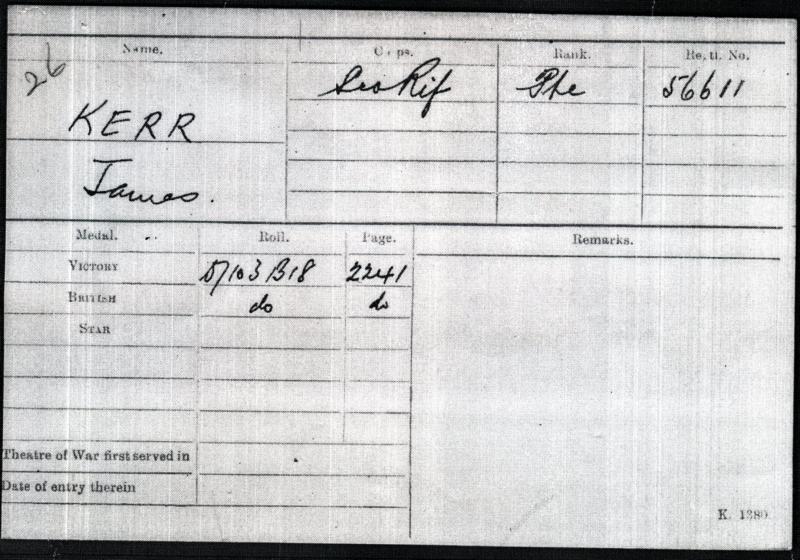 26
Name. Corps. Rank. Regtl. No.
Sco Rif Pte 56611
KERR
James.
Medal. Roll. Page. Remarks.
VICTORY D/103 B18 2241
BRITISH do do
STAR
Theatre of War first served in
Date of entry therein
K. 1380.